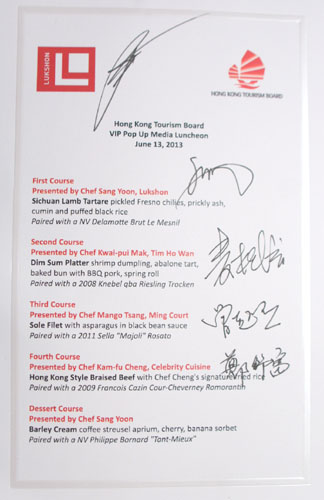 LUKSHON
HONG KONG TOURISM BOARD
Hong Kong Tourism Board
VIP Pop Up Media Luncheon
June 13, 2013
First Course
Presented by Chef Sang Yoon, Lukshon
Sichuan Lamb Tartare pickled Fresno chilies, prickly ash,
cumin and puffed black rice
Paired with a NV Delamotte Brut Le Mesnil
Second Course
Presented by Chef Kwai-pui Mak, Tim Ho Wan
Dim Sum Platter shrimp dumpling, abalone tart,
baked bun with BBQ pork, spring roll
Paired with a 2008 Knebel qba Riesling Trocken
Third Course
Presented by Chef Mango Tsang, Ming Court
Sole Filet with asparagus in black bean sauce
Paired with a 2011 Sella "Majoli" Rosato
Fourth Course
Presented by Chef Kam-fu Cheng, Celebrity Cuisine
Hong Kong Style Braised Beef with Chef Cheng's signature fried rice
Paired with a 2009 Francois Cazin Cour-Cheverney Romorantin
Dessert Course
Presented by Chef Sang Yoon
Barley Cream coffee streusel aprium, cherry, banana sorbet
Paired with a NV Philippe Bornard "Tant-Mieux"